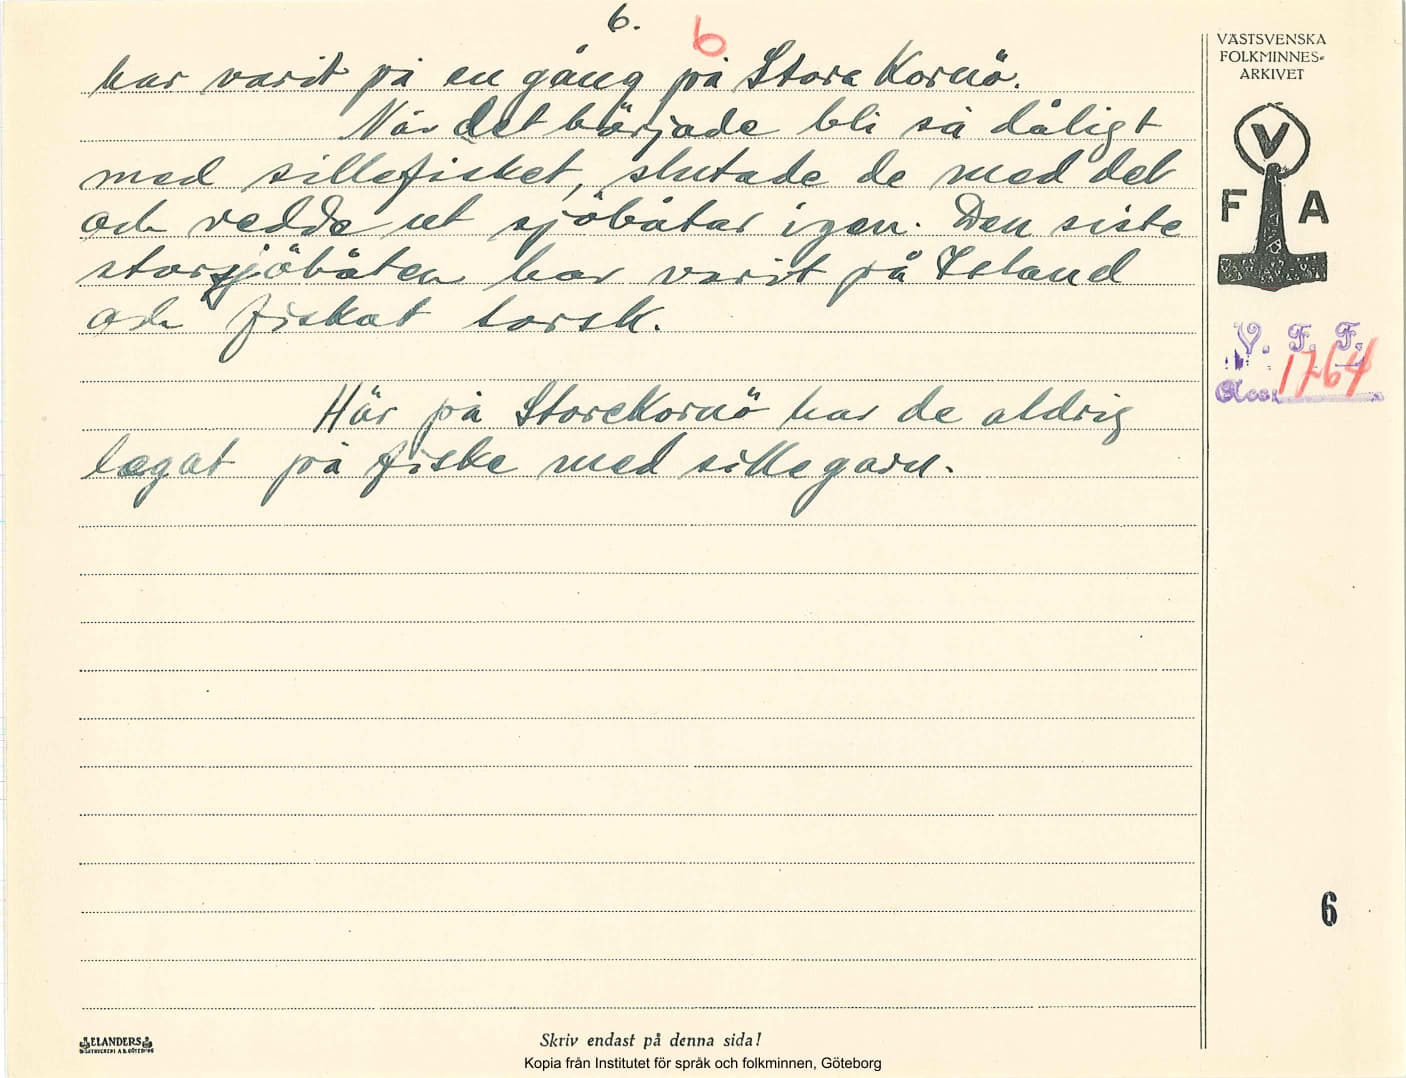 6. 6
har varit på en gång på Stora Kornö.
När det började bli så dåligt
med sillefisket, slutade de med det
och redde ut sjöbåtar igen. Den siste
storsjöbåten har varit på Island
och fiskat torsk.
Här på StoreKornö har de aldrig
legat på fiske med sillegarn.
VÄSTSVENSKA
FOLKMINNES-
ARKIVET
V
F A
V. F. F.
Acc: 1764
6
ELANDERS
Skriv endast på denna sida!
Kopia från Institutet för språk och folkminnen, Göteborg